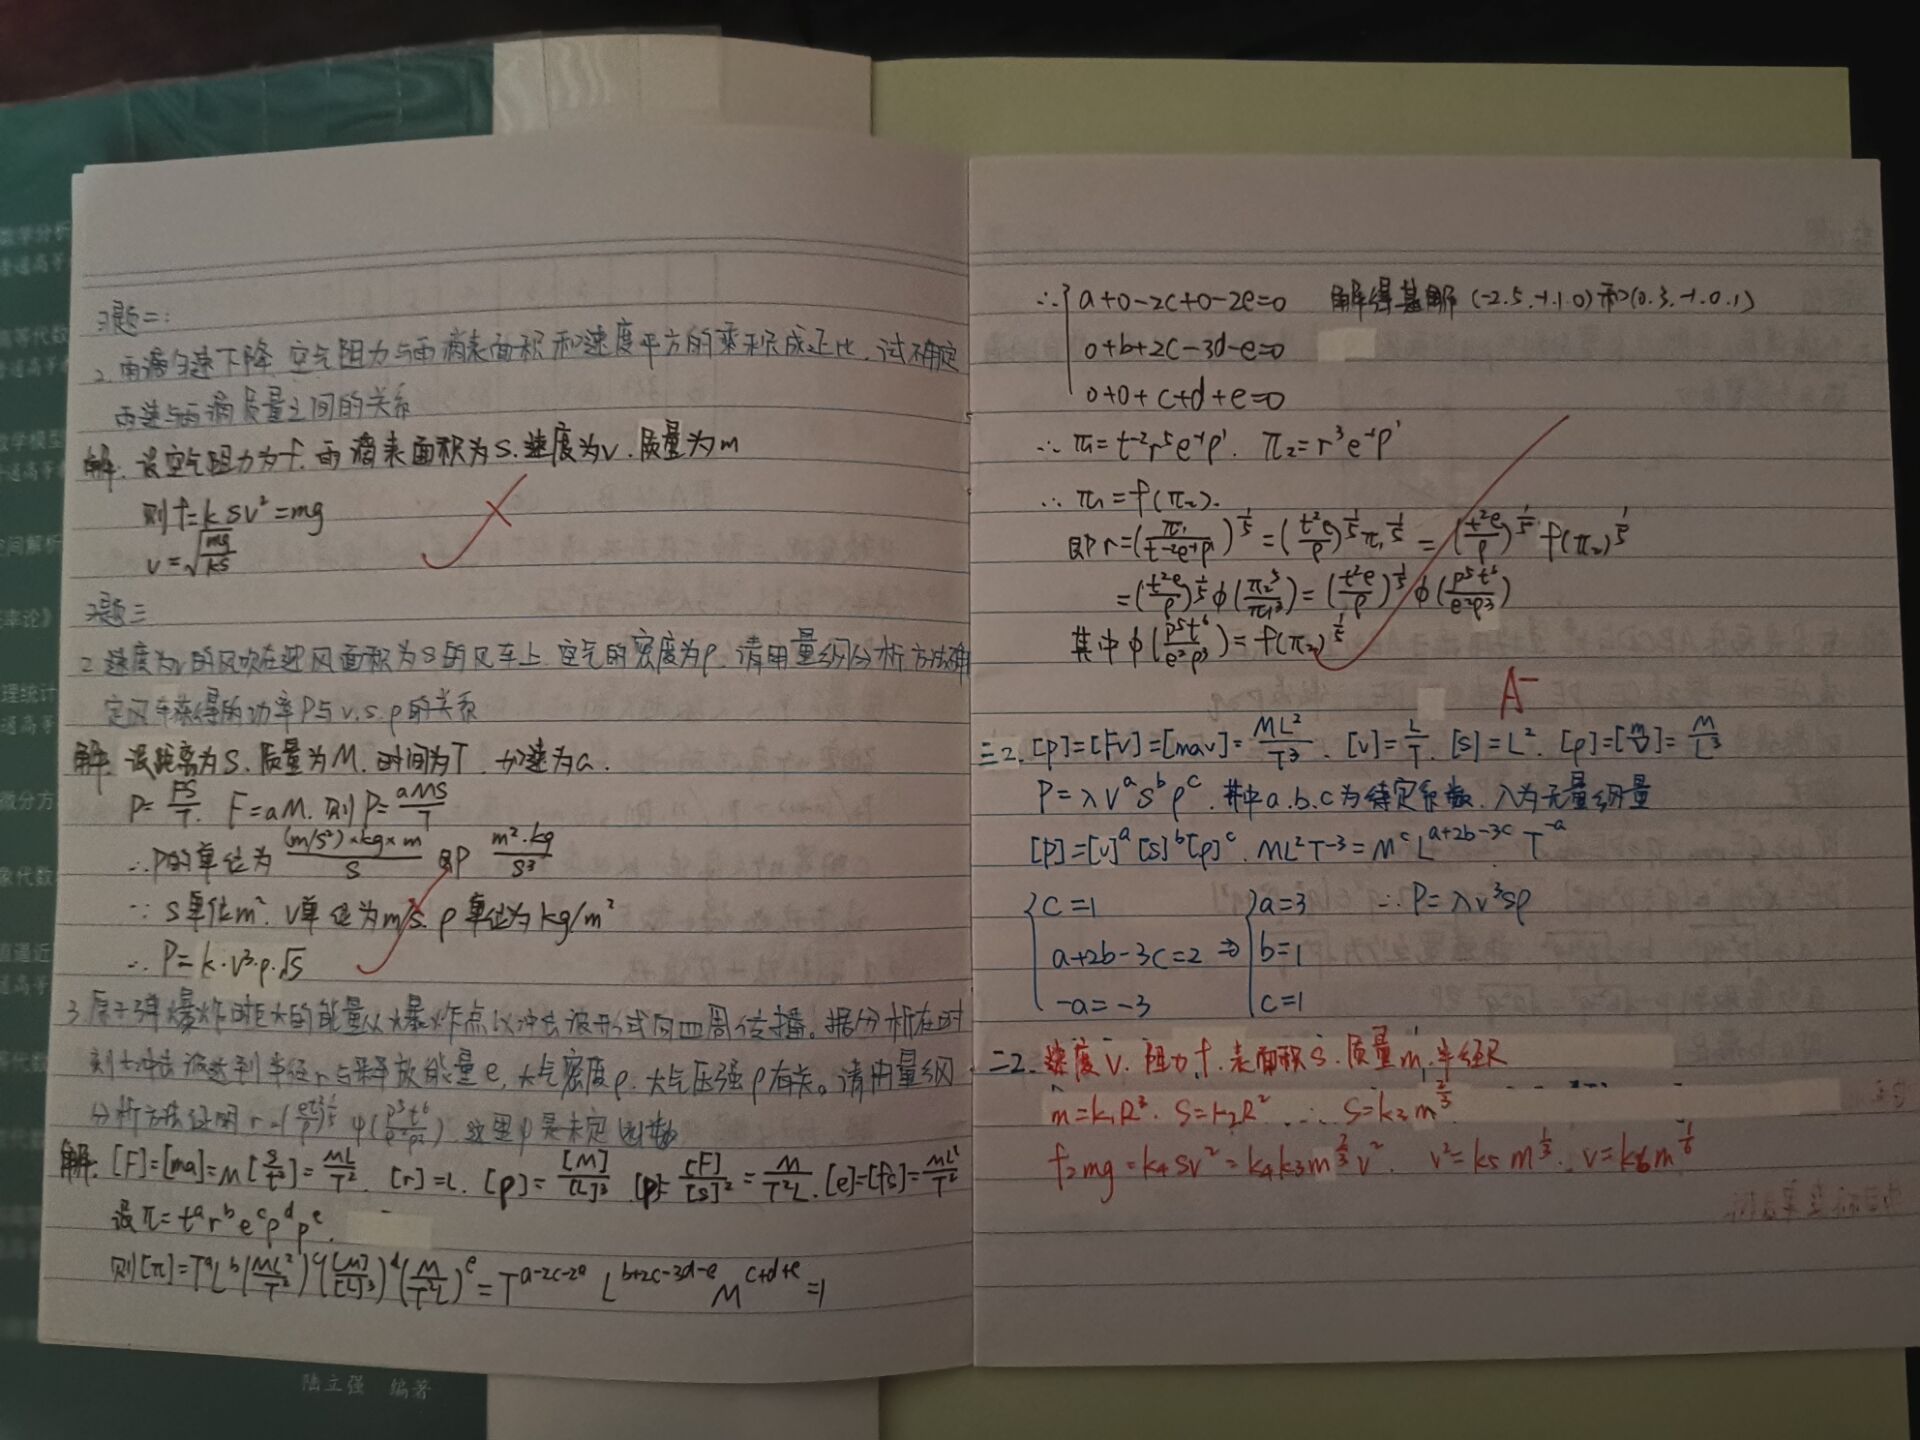 习题二:
2. 雨滴匀速下降,空气阻力与雨滴表面积和速度平方的乘积成正比,试确定
雨速与雨滴质量之间的关系
解: 设空气阻力为f,雨滴表面积为S,速度为v,质量为m
则f=kSv²=mg
v=√(mg/kS)
习题三
2 速度为v的风吹在迎风面积为S的风车上,空气的密度为ρ,请用量纲分析方法确
定风车获得的功率P与v,s,ρ的关系
解: 设距离为S,质量为M,时间为T,加速为a.
P=FS/T. F=aM. 则P=aMS/T
∴P的单位为 (m/s²)×kg×m/s 即 m²·kg/s³
∵ S单位m². v单位为m/s. ρ单位为kg/m²
∴ P=k·v³·ρ·√S
3. 原子弹爆炸时巨大的能量从爆炸点以冲击波形式向四周传播。据分析在时
刻t冲击波达到半径r与释放能量e,大气密度ρ,大气压强p有关。请用量纲
分析方法证明 φ是未定函数
解: [F]=[ma]=M[S/T²]=ML/T². [r]=L. [ρ]=[M]/[L]³. [p]=[F]/[S]²=M/T²L. [e]=[fs]=ML²/T²
设π=t^a r^b e^c ρ^d p^e.
则[π]=T^a L^b (ML²/T²)^c ([M]/[L]³)^d (M/T²L)^e = T^(a-2c-2e) L^(b+2c-3d-e) M^(c+d+e) =1
∴ { a+0-2c+0-2e=0 解得基解 (-2.5.-1.1.0)和(0.3.-1.0.1)
0+b+2c-3d-e=0
0+0+c+d+e=0
∴ π₁=t⁻²r⁵e⁻¹ρ¹. π₂=r³e⁻¹p¹
∴ π₁=f(π₂).
即r=(π₁/t⁻²e⁻¹ρ¹)^(1/5)=(t²e/ρ)^(1/5)π₁^(1/5)=(t²e/ρ)^(1/5) f(π₂)^(1/5)
=(t²e/ρ)^(1/5) φ(π₂⁵/π₁³)=(t²e/ρ)^(1/5) φ(p⁵t⁶/e²ρ³)
其中φ(p⁵t⁶/e²ρ³)=f(π₂)^(1/5)
A⁻
三2. [p]=[Fv]=[mav]=ML²/T³. [v]=L/T. [s]=L². [ρ]=[m/v]=M/L³
P=λv^a s^b ρ^c. 其中a.b.c为待定系数. λ为无量纲量
[p]=[v]^a [s]^b [ρ]^c. ML²T⁻³=M^c L^(a+2b-3c) T^(-a)
{ c=1 { a=3 ∴P=λv³sρ
a+2b-3c=2 ⇒ b=1
-a=-3 c=1
二2. 速度v. 阻力f. 表面积s. 质量m. 半径R
m=k₁R³. S=k₂R² ∴ S=k₃m^(2/3)
f=mg=k₄Sv²=k₄k₃m^(2/3)v². v²=k₅m^(1/3). v=k₆m^(1/6)
陆立强 编著